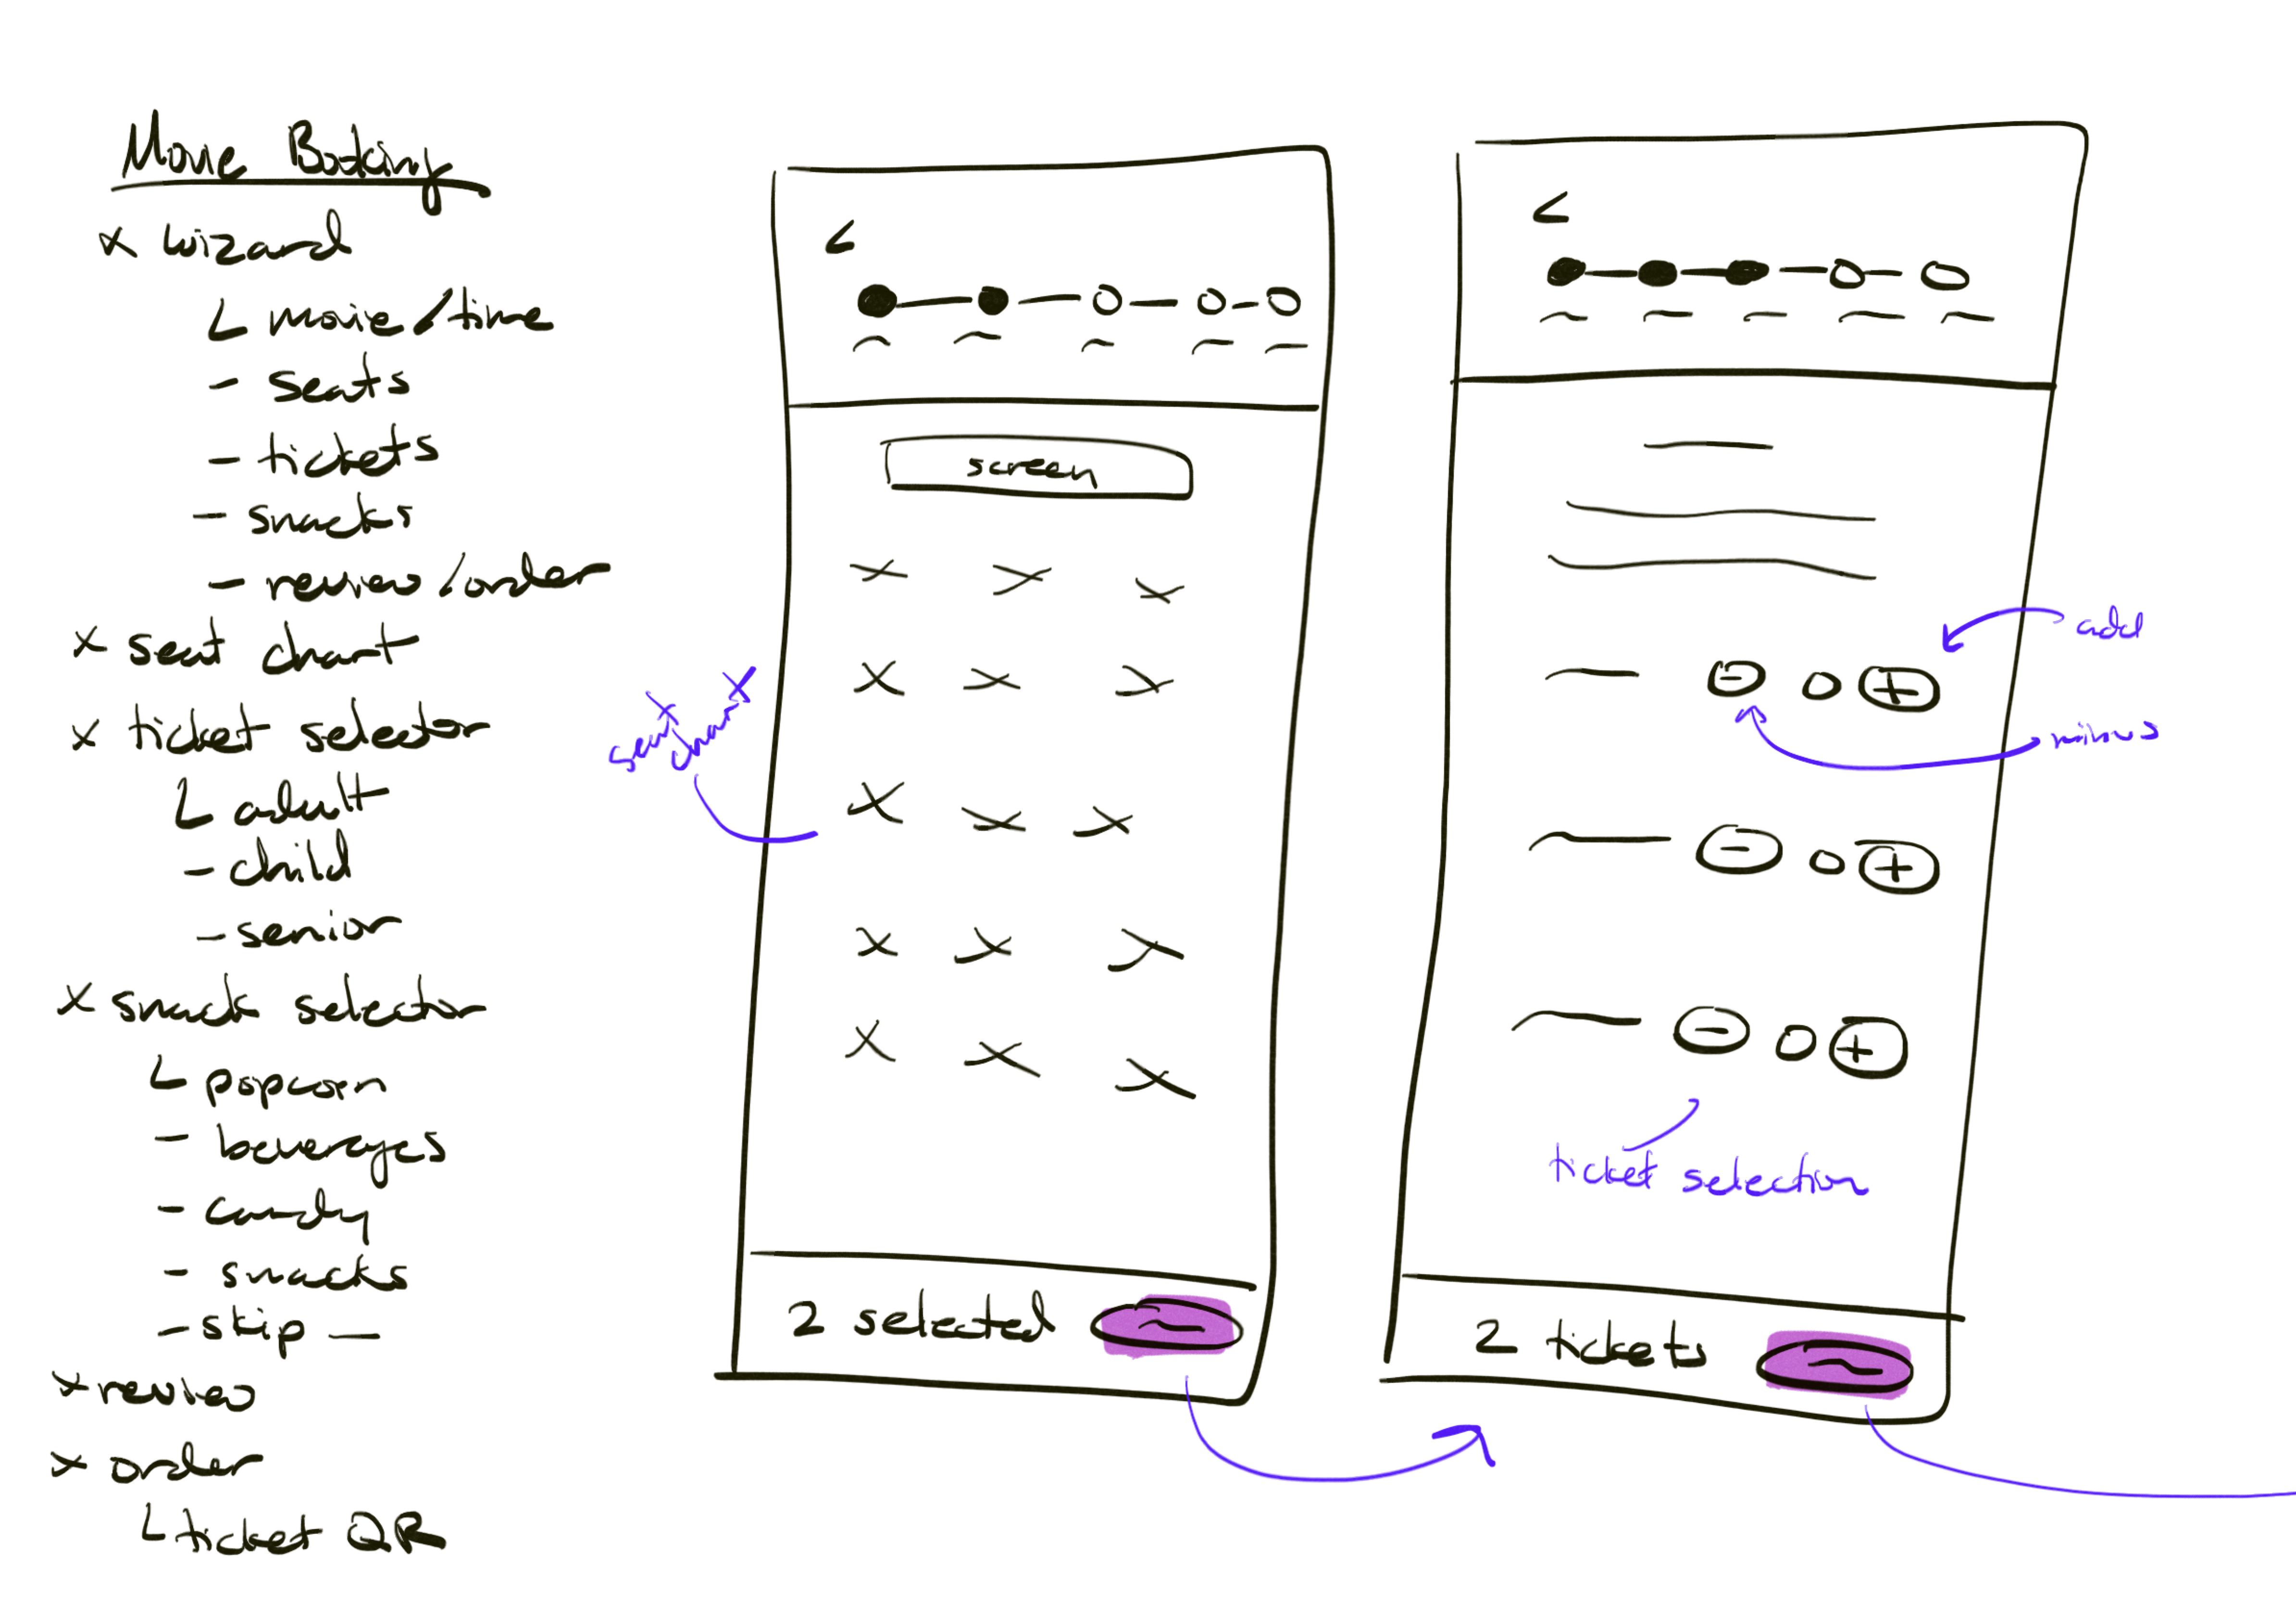 Movie Booking
x wizard
L movie/time
- seats
- tickets
- snacks
- review/order
x seat chart
x ticket selector
L adult
- child
- senior
x snack selector
L popcorn
- beverages
- candy
- snacks
- skip -
x review
x order
L ticket QR
<
screen
seat
chart
2 selected
<
add
- 0 +
minus
- 0 +
- 0 +
ticket selection
2 tickets